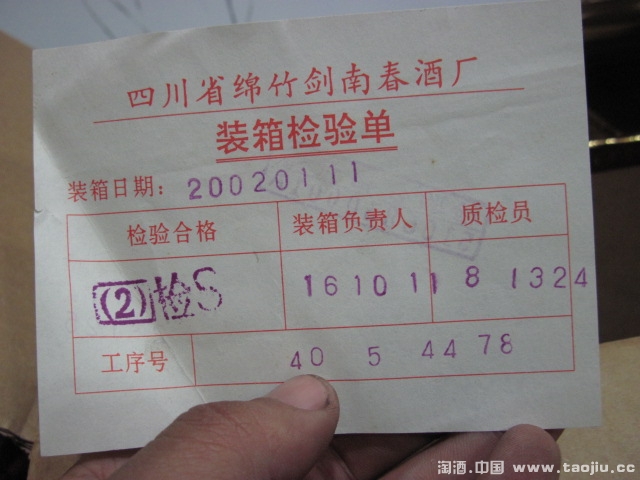 四川省绵竹剑南春酒厂
装箱检验单
装箱日期: 20020111
检验合格 装箱负责人 质检员
(2)检S 16 10 11 8 13 24
工序号 40 5 44 78
淘酒.中国 www.taojiu.cc